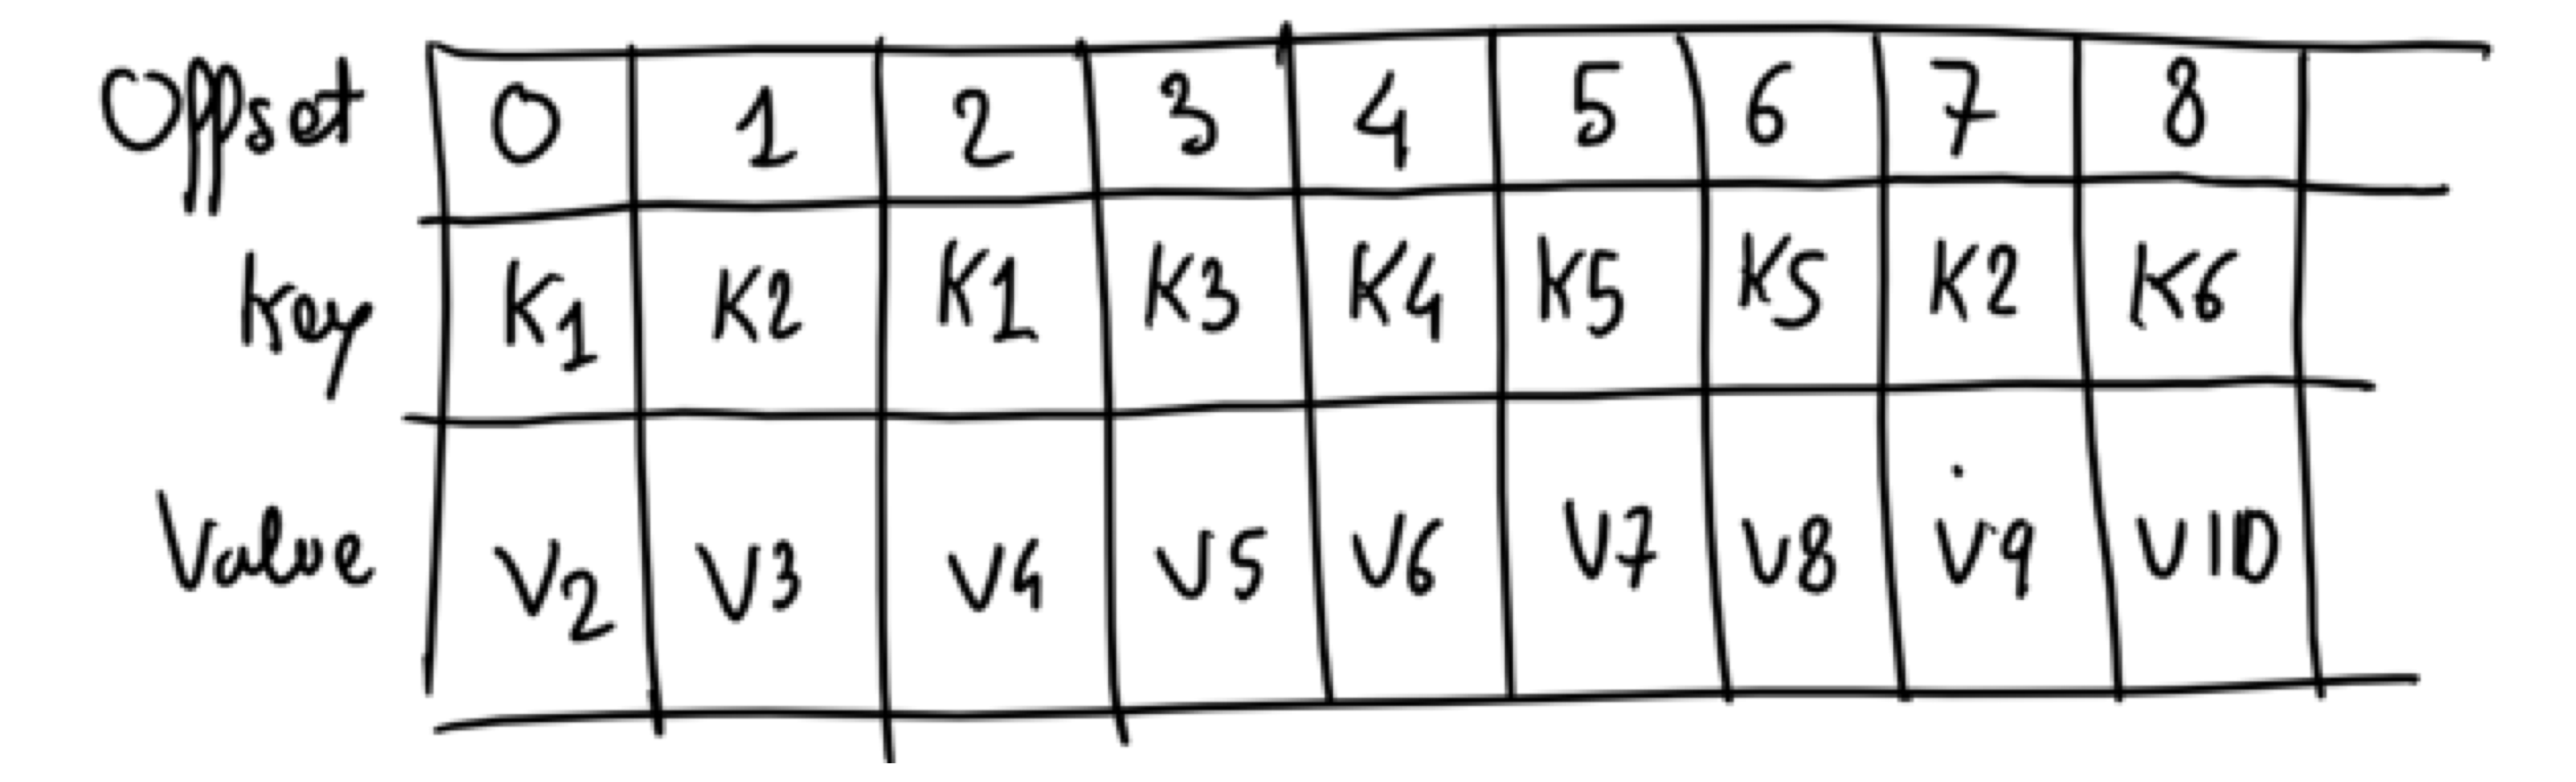 Offset 0 1 2 3 4 5 6 7 8
Key K1 K2 K1 K3 K4 K5 K5 K2 K6
Value V2 V3 V4 V5 V6 V7 V8 V9 V10